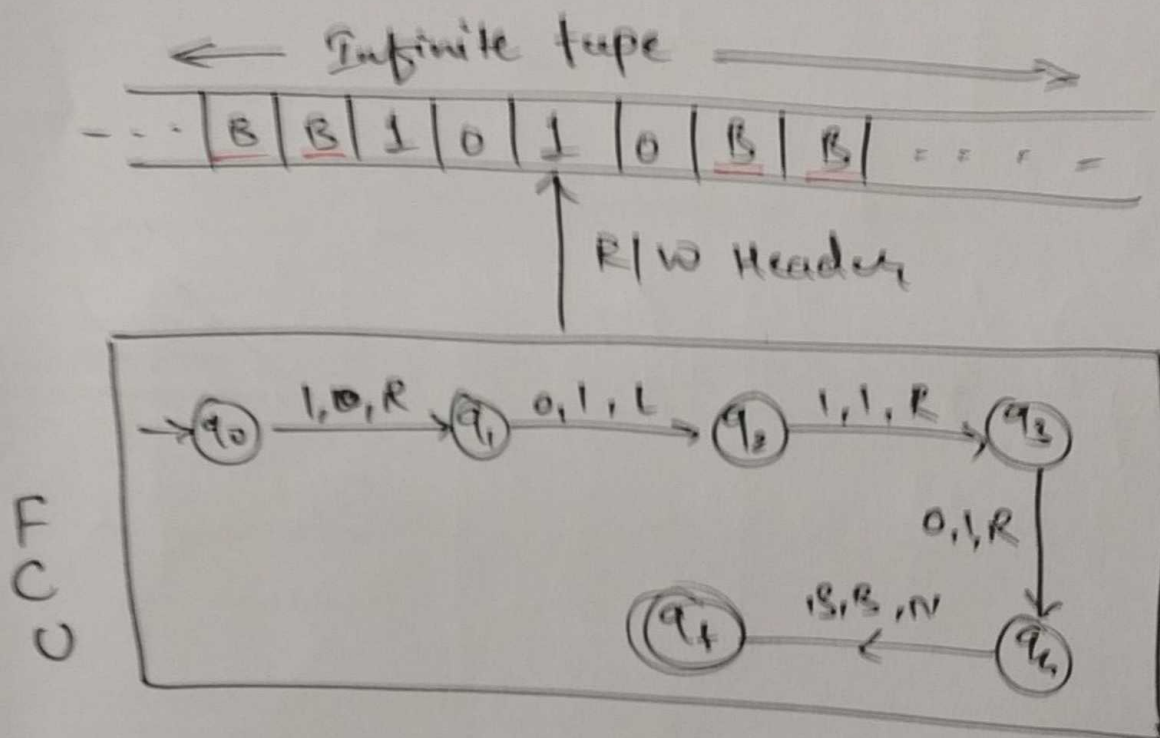 Infinite tape
B B 1 0 1 0 B B
R/W Header
q0 1,0,R q1 0,1,L q2 1,1,R q3
0,1,R
F
C
U
qf B,B,N q4